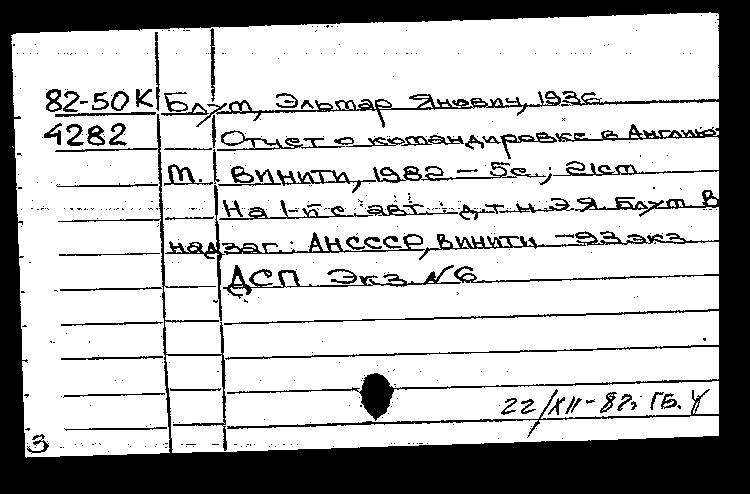 82-50К Блүм, Эльмар Янович, 1936
4282 Отчет о командировке в Англию
М. ВИНИТИ, 1982 – 5с.; 21см
На 1-й с. авт.: д.т.н. Э.Я. Блүм В
надзаг.: АНСССР, ВИНИТИ – 93 экз
ДСП. Экз. №6
22/XII-82г ГБ.
3